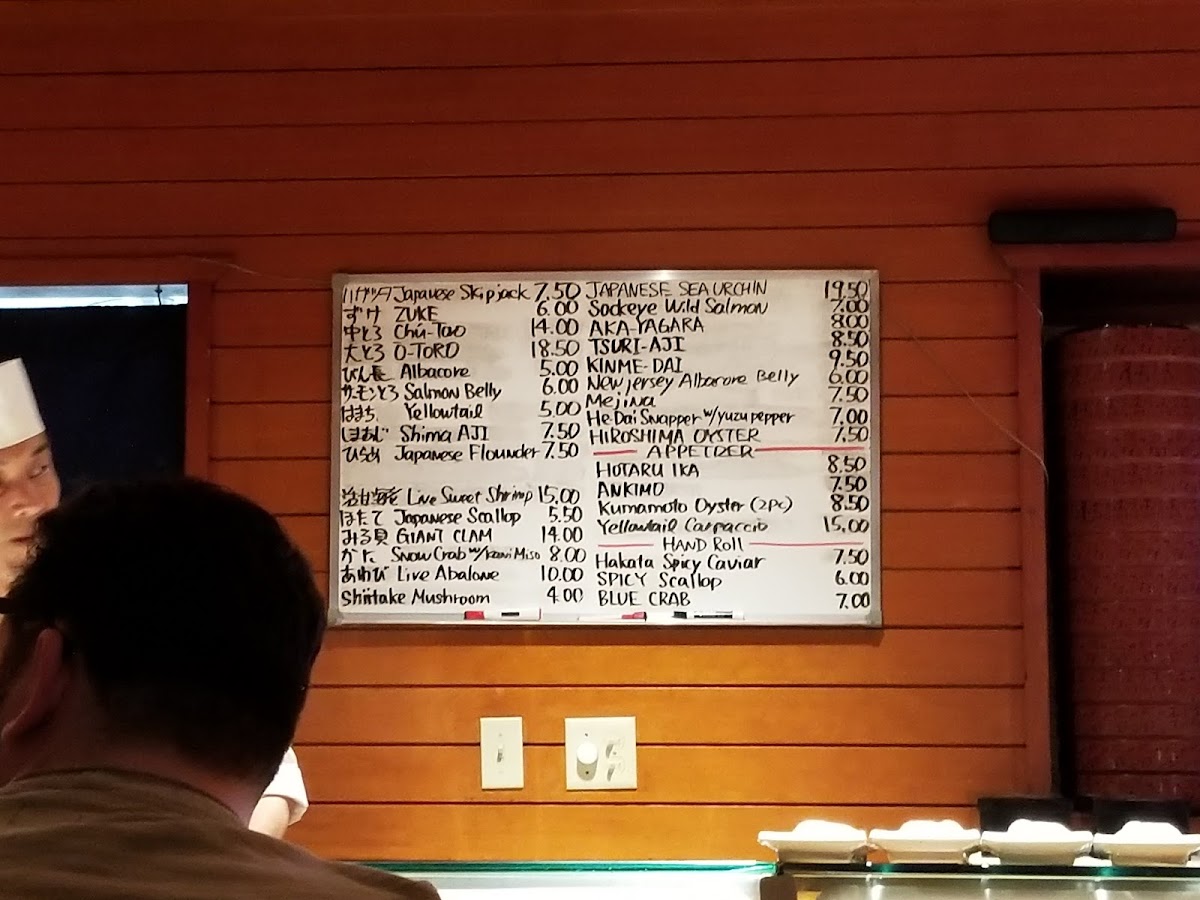 ハガツヲ Japanese Skipjack 7.50
ずけ ZUKE 6.00
中とろ Chu-Toro 14.00
大とろ O-TORO 18.50
びん長 Albacore 5.00
サーモンとろ Salmon Belly 6.00
はまち Yellowtail 5.00
しまあじ Shima AJI 7.50
ひらめ Japanese Flounder 7.50
活甘海老 Live Sweet Shrimp 15.00
ほたて Japanese Scallop 5.50
みる貝 GIANT CLAM 14.00
かに Snow Crab w/kani Miso 8.00
あわび Live Abalone 10.00
Shiitake Mushroom 4.00
JAPANESE SEA URCHIN 19.50
Sockeye Wild Salmon 7.00
AKA-YAGARA 8.00
TSURI-AJI 8.50
KINME-DAI 9.50
New Jersey Albacore Belly 6.00
Mejina 7.50
He-Dai Snapper w/yuzu pepper 7.00
HIROSHIMA OYSTER 7.50
APPETIZER
HOTARU IKA 8.50
ANKIMO 7.50
Kumamoto Oyster (2PC) 8.50
Yellowtail Carpaccio 15.00
HAND Roll
Hakata Spicy Caviar 7.50
SPICY Scallop 6.00
BLUE CRAB 7.00